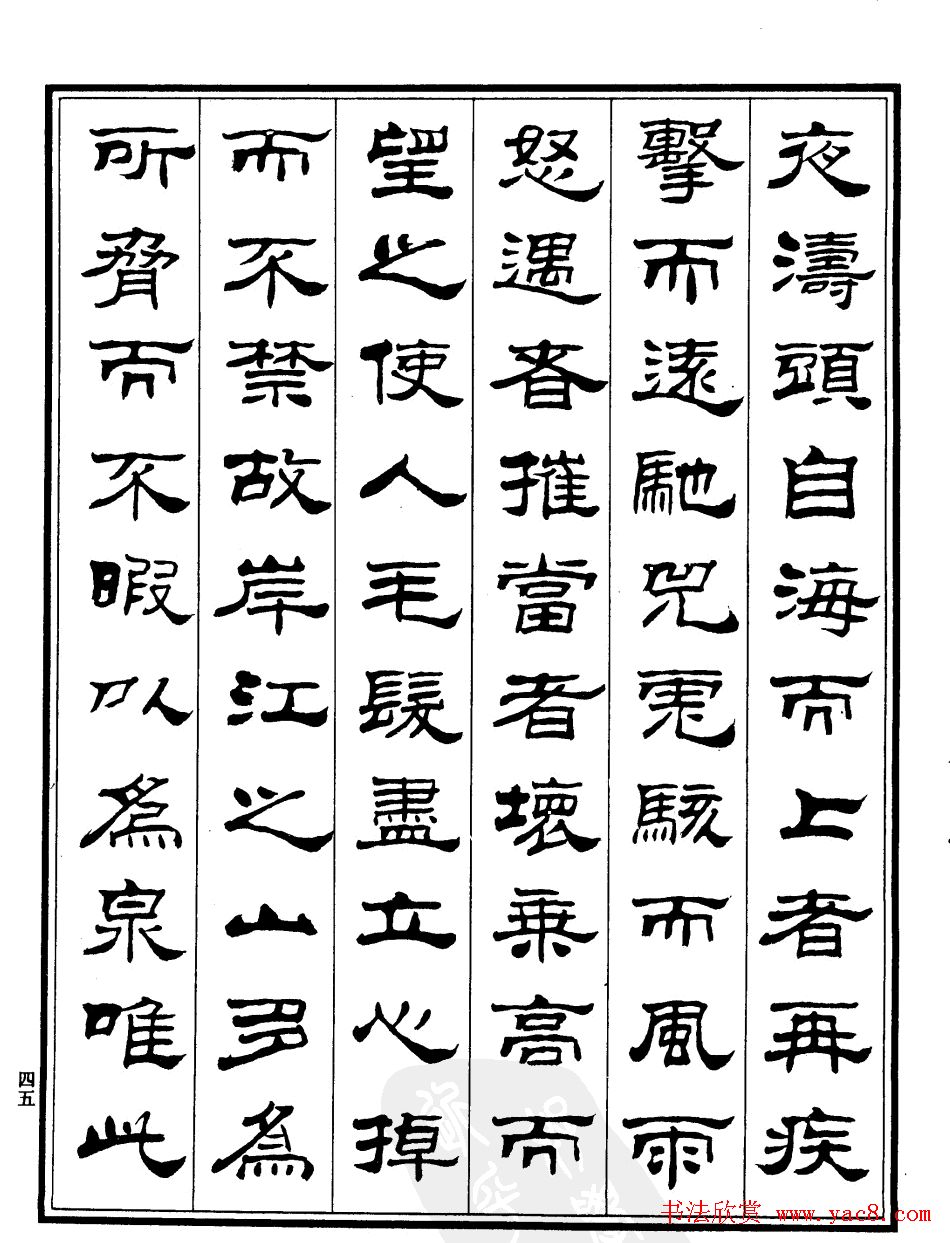 夜濤頭自海而上者再疾
擊而遠馳兕虎駭而風雨
怒遇者摧當者壞乗高而
望之使人毛髮盡立心掉
而不禁故岸江之山多為
所脅而不暇以為泉唯此
四五
书法欣赏 www.yac8.com